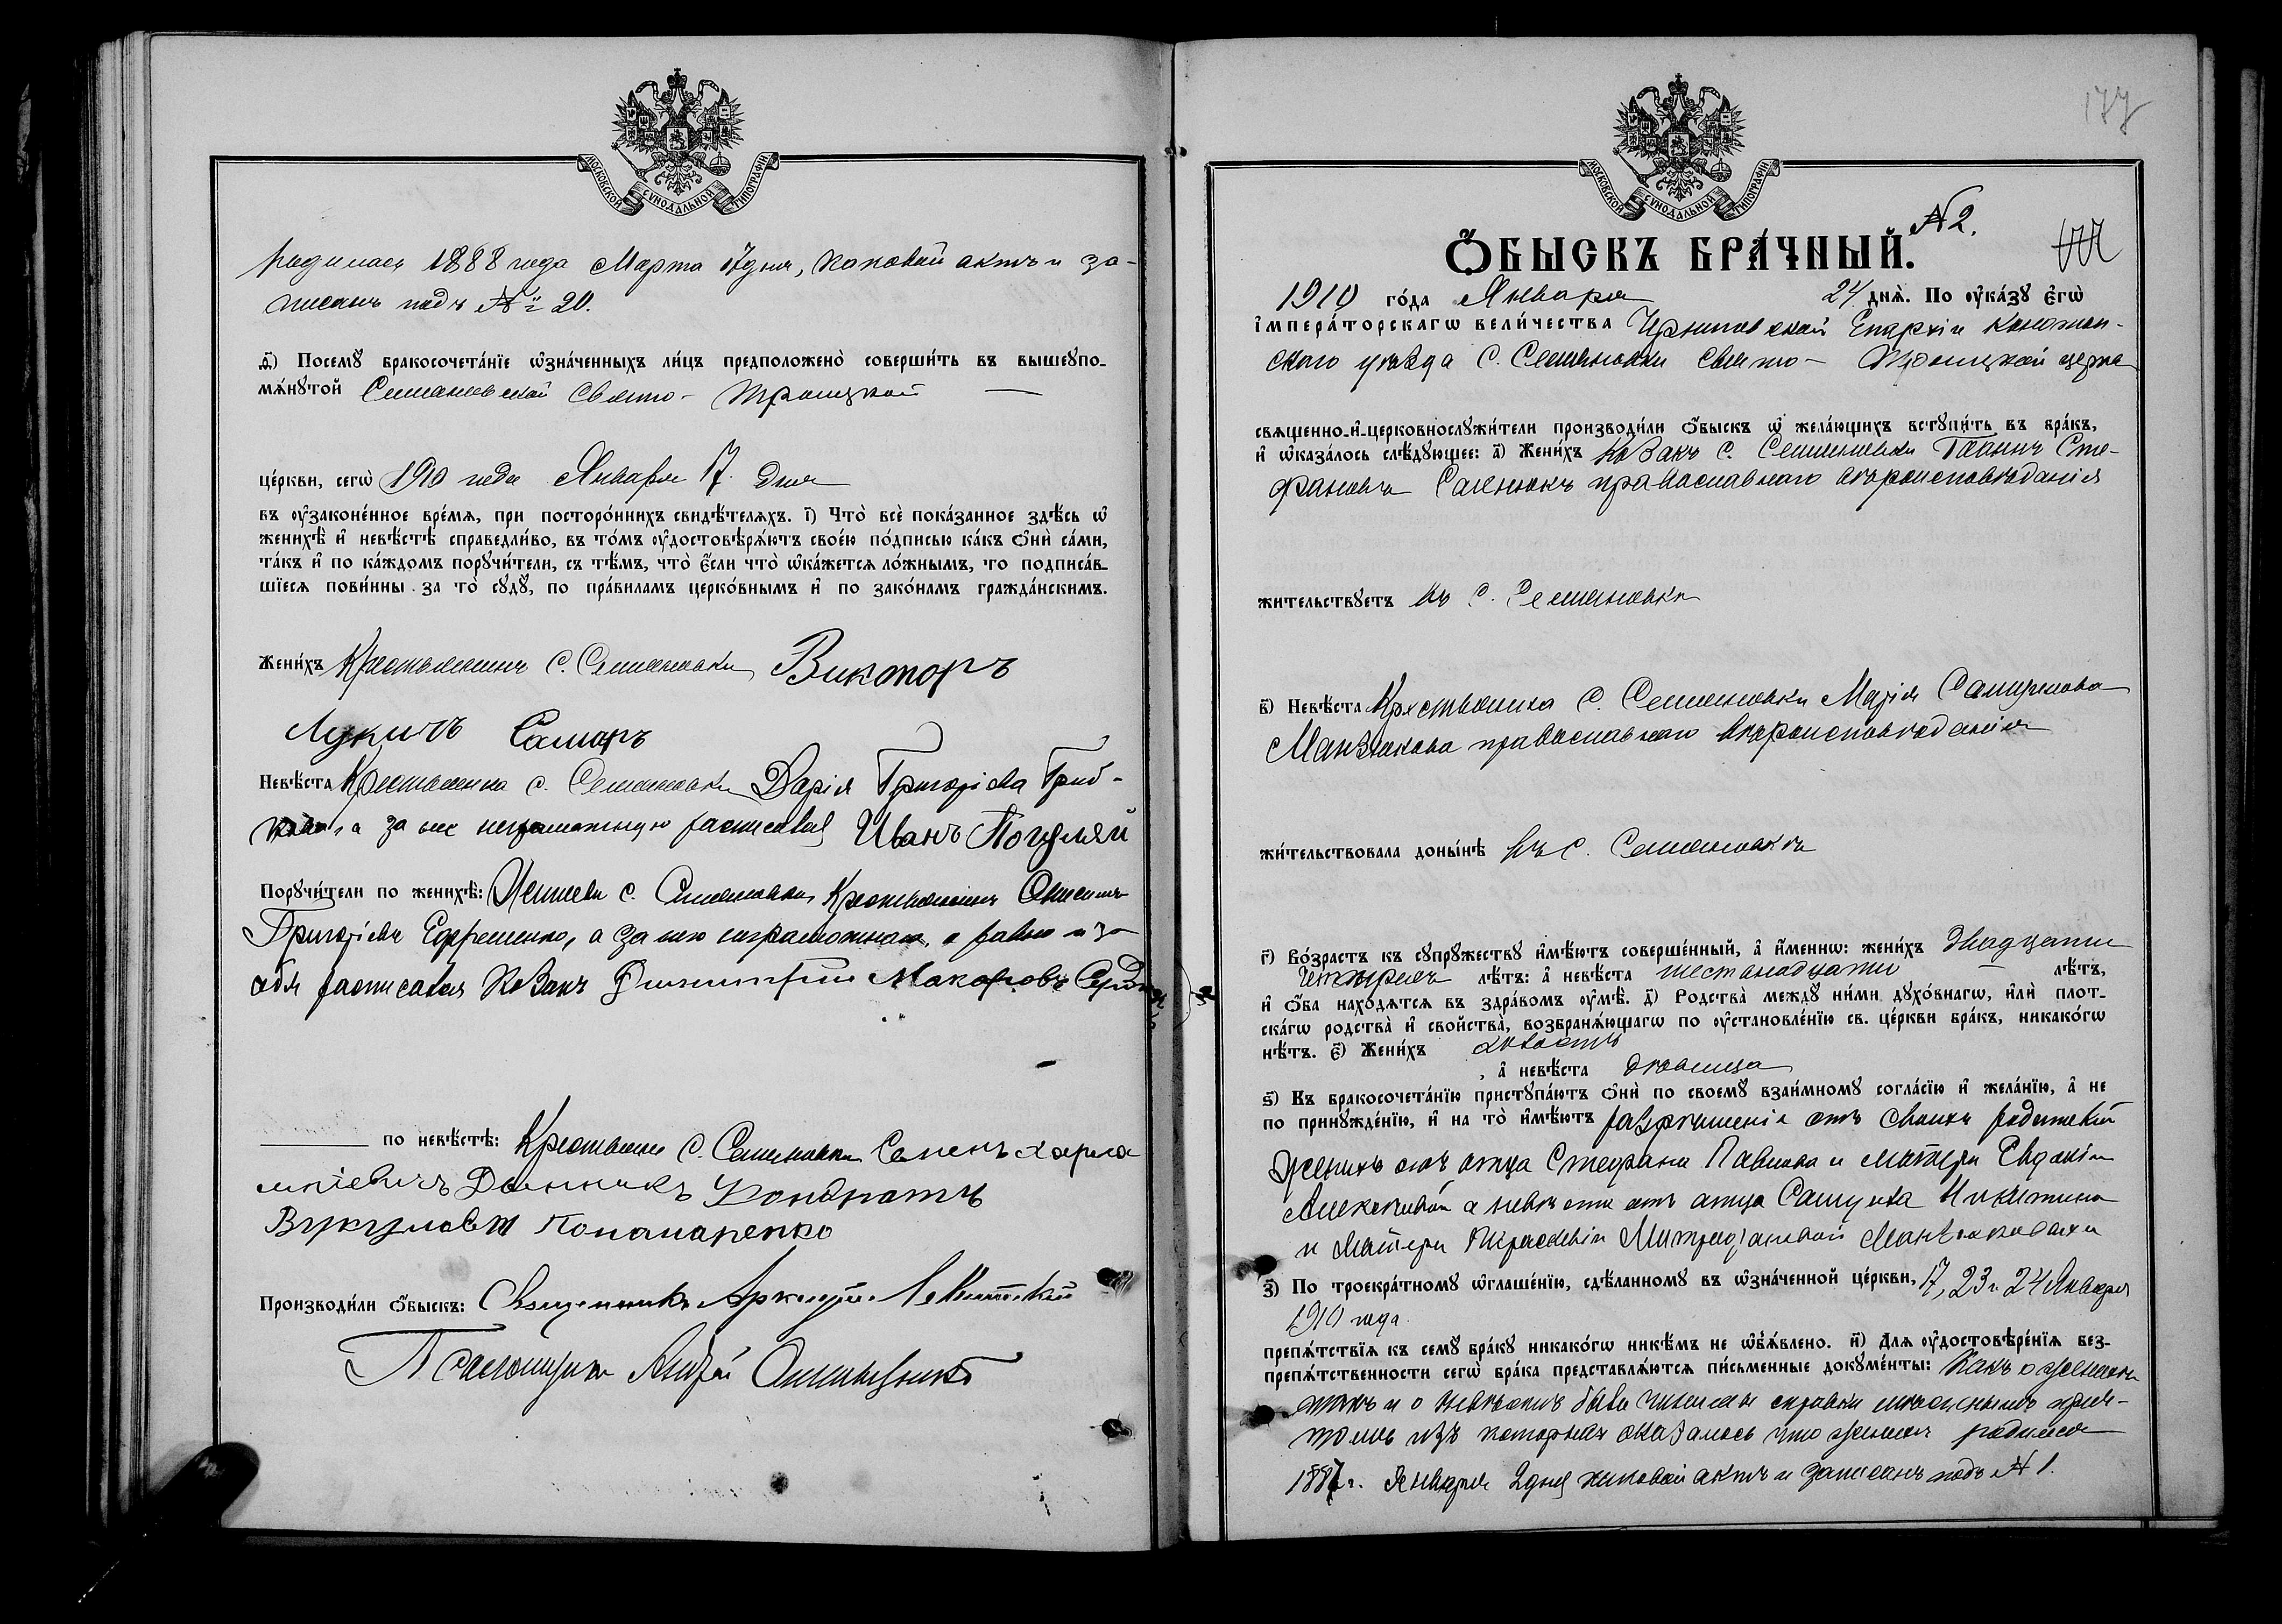 МОСКОВСКОЙ СѴНОДАЛЬНОЙ ТИПОГРАФІИ
родилась 1888 года Марта 17 дня, каковой актъ и за-
писанъ подъ № 20.
д҃) Посемꙋ бракосочета́нїе ѡ҆зна́ченныхъ ли́цъ предположено̀ соверши́ть въ вышеꙋпо-
мѧ́нꙋтой Семяновской Свято- Троицкой
це́ркви, сегѡ̀ 1910 года Января 17 дня
въ ᲂу҆законе́нное вре́мѧ, при посторо́ннихъ свидѣ́телѧхъ. і҃) Что̀ всѐ пока́занное здѣ́сь ѡ҆
женихѣ̀ и҆ невѣ́стѣ справедли́во, въ то́мъ ᲂу҆достовѣрѧ́ютъ свое́ю по́дписью ка́къ ѻ҆нѝ са́ми,
та́къ и҆ по ка́ждомъ порꙋчи́тели, съ тѣ́мъ, что̀ є҆́сли что̀ ѡ҆ка́жетсѧ ло́жнымъ, то подписа́в-
шїесѧ пови́нны за то̀ сꙋдꙋ̀, по пра́виламъ церко́внымъ и҆ по зако́намъ гражда́нскимъ.
Жени́хъ Крестьянинъ с. Семяновки Викторъ
Лукичъ Самаръ
Невѣ́ста Крестьянка с. Семяновки Дарія Григоріева Гриб-
а за нее неграмотную росписался Иванъ Погуляй
Порꙋчи́тели по женихѣ̀: Жители с. Семяновки Крестьянинъ Онисимъ
Григоріевъ Ефременко, а за него неграмотнаго, а равно и за
себя росписался Козакъ Димитрій Макаровъ
по невѣ́стѣ: Крестьяне с. Семяновки Семенъ Харла
мпіевичъ Донникъ Кондратъ
Вукуловъ Понамаренко
Производи́ли ѻ҆́быскъ: Священникъ Аркадій
Псаломщикъ Андрей
177
МОСКОВСКОЙ СѴНОДАЛЬНОЙ ТИПОГРАФІИ
№ 2.
Ѻ҆́БЫСКЪ БРА́ЧНЫЙ.
1910 го́да Января 24 днѧ̀. По ᲂу҆ка́зꙋ є҆гѡ̀
і҆мпера́торскагѡ вели́чества Черниговской Епархіи Конотоп-
скаго уѣзда с. Семяновки Свято- Троицкой церкви
свѧщенно-и҆-церковнослꙋжи́тели производи́ли ѻ҆́быскъ ѡ҆ жела́ющихъ встꙋпи́ть въ бра́къ,
и҆ ѡ҆каза́лось слѣ́дꙋющее: а҃) Жени́хъ Козакъ с. Семяновки Іоаннъ Сте-
фановъ Саенокъ православнаго вѣроисповѣданія
жительствꙋетъ въ с. Семяновкѣ
в҃) Невѣ́ста Крестьянка с. Семяновки Марія Самуилова
Манзюкова православнаго вѣроисповѣданія
жи́тельствовала доны́нѣ въ с. Семяновкѣ
г҃) Во́зрастъ къ сꙋпрꙋ́жествꙋ и҆мѣ́ютъ соверше́нный, а҆ и҆́меннѡ: жени́хъ двадцати
четырехъ лѣ́тъ: а҆ невѣ́ста шестнадцати лѣ́тъ,
и҆ ѻ҆́ба нахо́дѧтсѧ въ здра́вомъ ᲂу҆мѣ̀. д҃) Родства̀ междꙋ̀ ни́ми дꙋхо́внагѡ, и҆лѝ плот-
ска́гѡ родства̀ и҆ сво́йства̀, возбранѧ́ющагѡ по ᲂу҆становле́нїю св. це́ркви бра́къ, никако́гѡ
нѣ́тъ. є҃) Жени́хъ холостъ
, а҆ невѣ́ста дѣвица
ѕ҃) Къ бракосочета́нїю пристꙋпа́ютъ ѻ҆нѝ по своемꙋ̀ взаи́мномꙋ согла́сїю и҆ жела́нїю, а҆ не
по принꙋжде́нїю, и҆ на то̀ и҆мѣ́ютъ разрѣшеніе отъ своихъ родителей
женихъ отъ отца Стефана Павлова и матери Евдокіи
Алексѣевой а невѣста отъ отца Самуила Никитина
и матери Параскевіи Митрофановой Манзюковыхъ
з҃) По троекра́тномꙋ ѡ҆глаше́нїю, сдѣ́ланномꙋ въ ѡ҆зна́ченной це́ркви, 17, 23 и 24 Января
1910 года.
препѧ́тствїѧ къ семꙋ̀ бра́кꙋ никако́гѡ никѣ́мъ не ѡ҆б̾ѧ́влено. и҃) Длѧ ᲂу҆достовѣре́нїѧ без-
препѧ́тственности сегѡ̀ бра́ка представлѧ́ютсѧ пи́сьменные докꙋме́нты: Какъ о женихѣ
такъ и о невѣстѣ были чинимы справки мѣстнымъ прич-
томъ изъ которыхъ оказалось что женихъ родился
1887 г. Января 2 дня каковой актъ и записанъ подъ № 1.